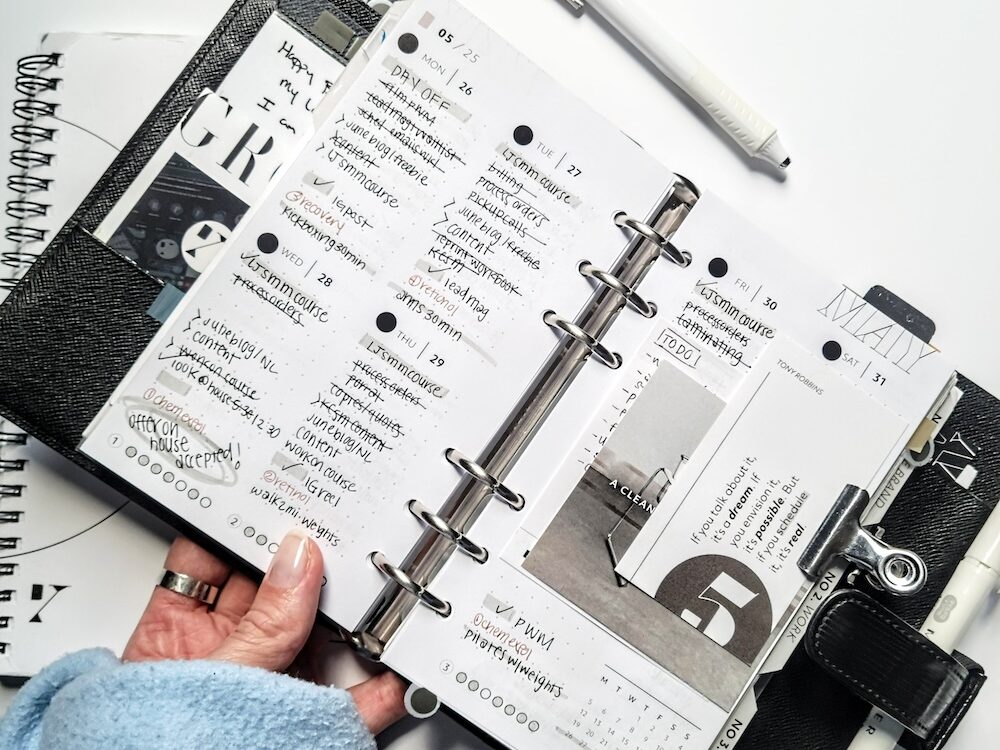 Happy
my
I am
GRO
05 / 25
MON | 26
DAY OFF
> june blog/freebie
content
> LJSmm course
✓ IG post
@recovery
kickboxing 30min
TUE | 27
LJSmm course
billing
process orders
pickup calls
> june blog/freebie
> content
reprint workbook
✓ lead mag
@retinol
arms 30min
WED | 28
✓ LJSmm course
process orders
> june blog/NL
> content
work on course
look @ house 5:30/2:30
@chem exfol
offer on
house
accepted!
1
THU | 29
LJSmm course
process orders
copies/quotes
> KCSM content
june blog/NL
content
work on course
✓ IG reel
@retinol
walk 2mi, weights
2
FRI | 30
✓ LJSmm course
process orders
laminating
TODO
A CLEAN
✓ PWM
@chem exfol
pilates w/weights
3
MAY
SAT | 31
TONY ROBBINS
If you talk about it,
it's a dream. If
you envision it,
it's possible. But
if you schedule
it, it's real.
M T W T F S
BRAND
NO 2. WORK
NO 3.